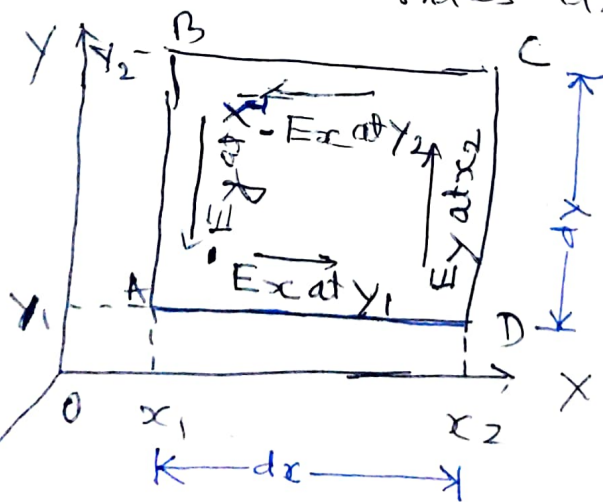 B
Y Y2 C
- Ex at Y2
- Ey at x1
Ey at x2
dy
Ex at Y1
Y1 A D
O x1 x2 X
dx